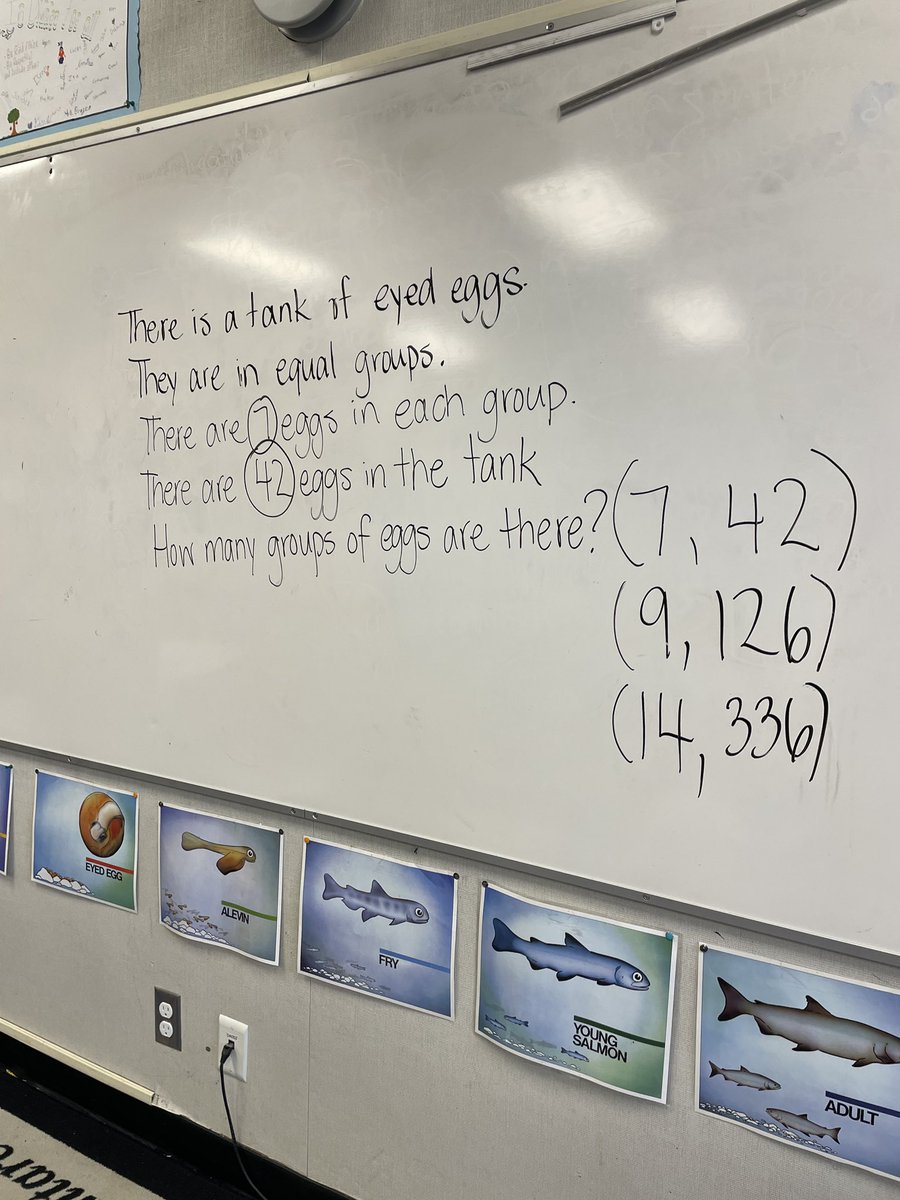 There is a tank of eyed eggs.
They are in equal groups.
There are 7 eggs in each group.
There are 42 eggs in the tank
How many groups of eggs are there? (7, 42)
(9, 126)
(14, 336)
EYED EGG
ALEVIN
FRY
YOUNG
SALMON
ADULT